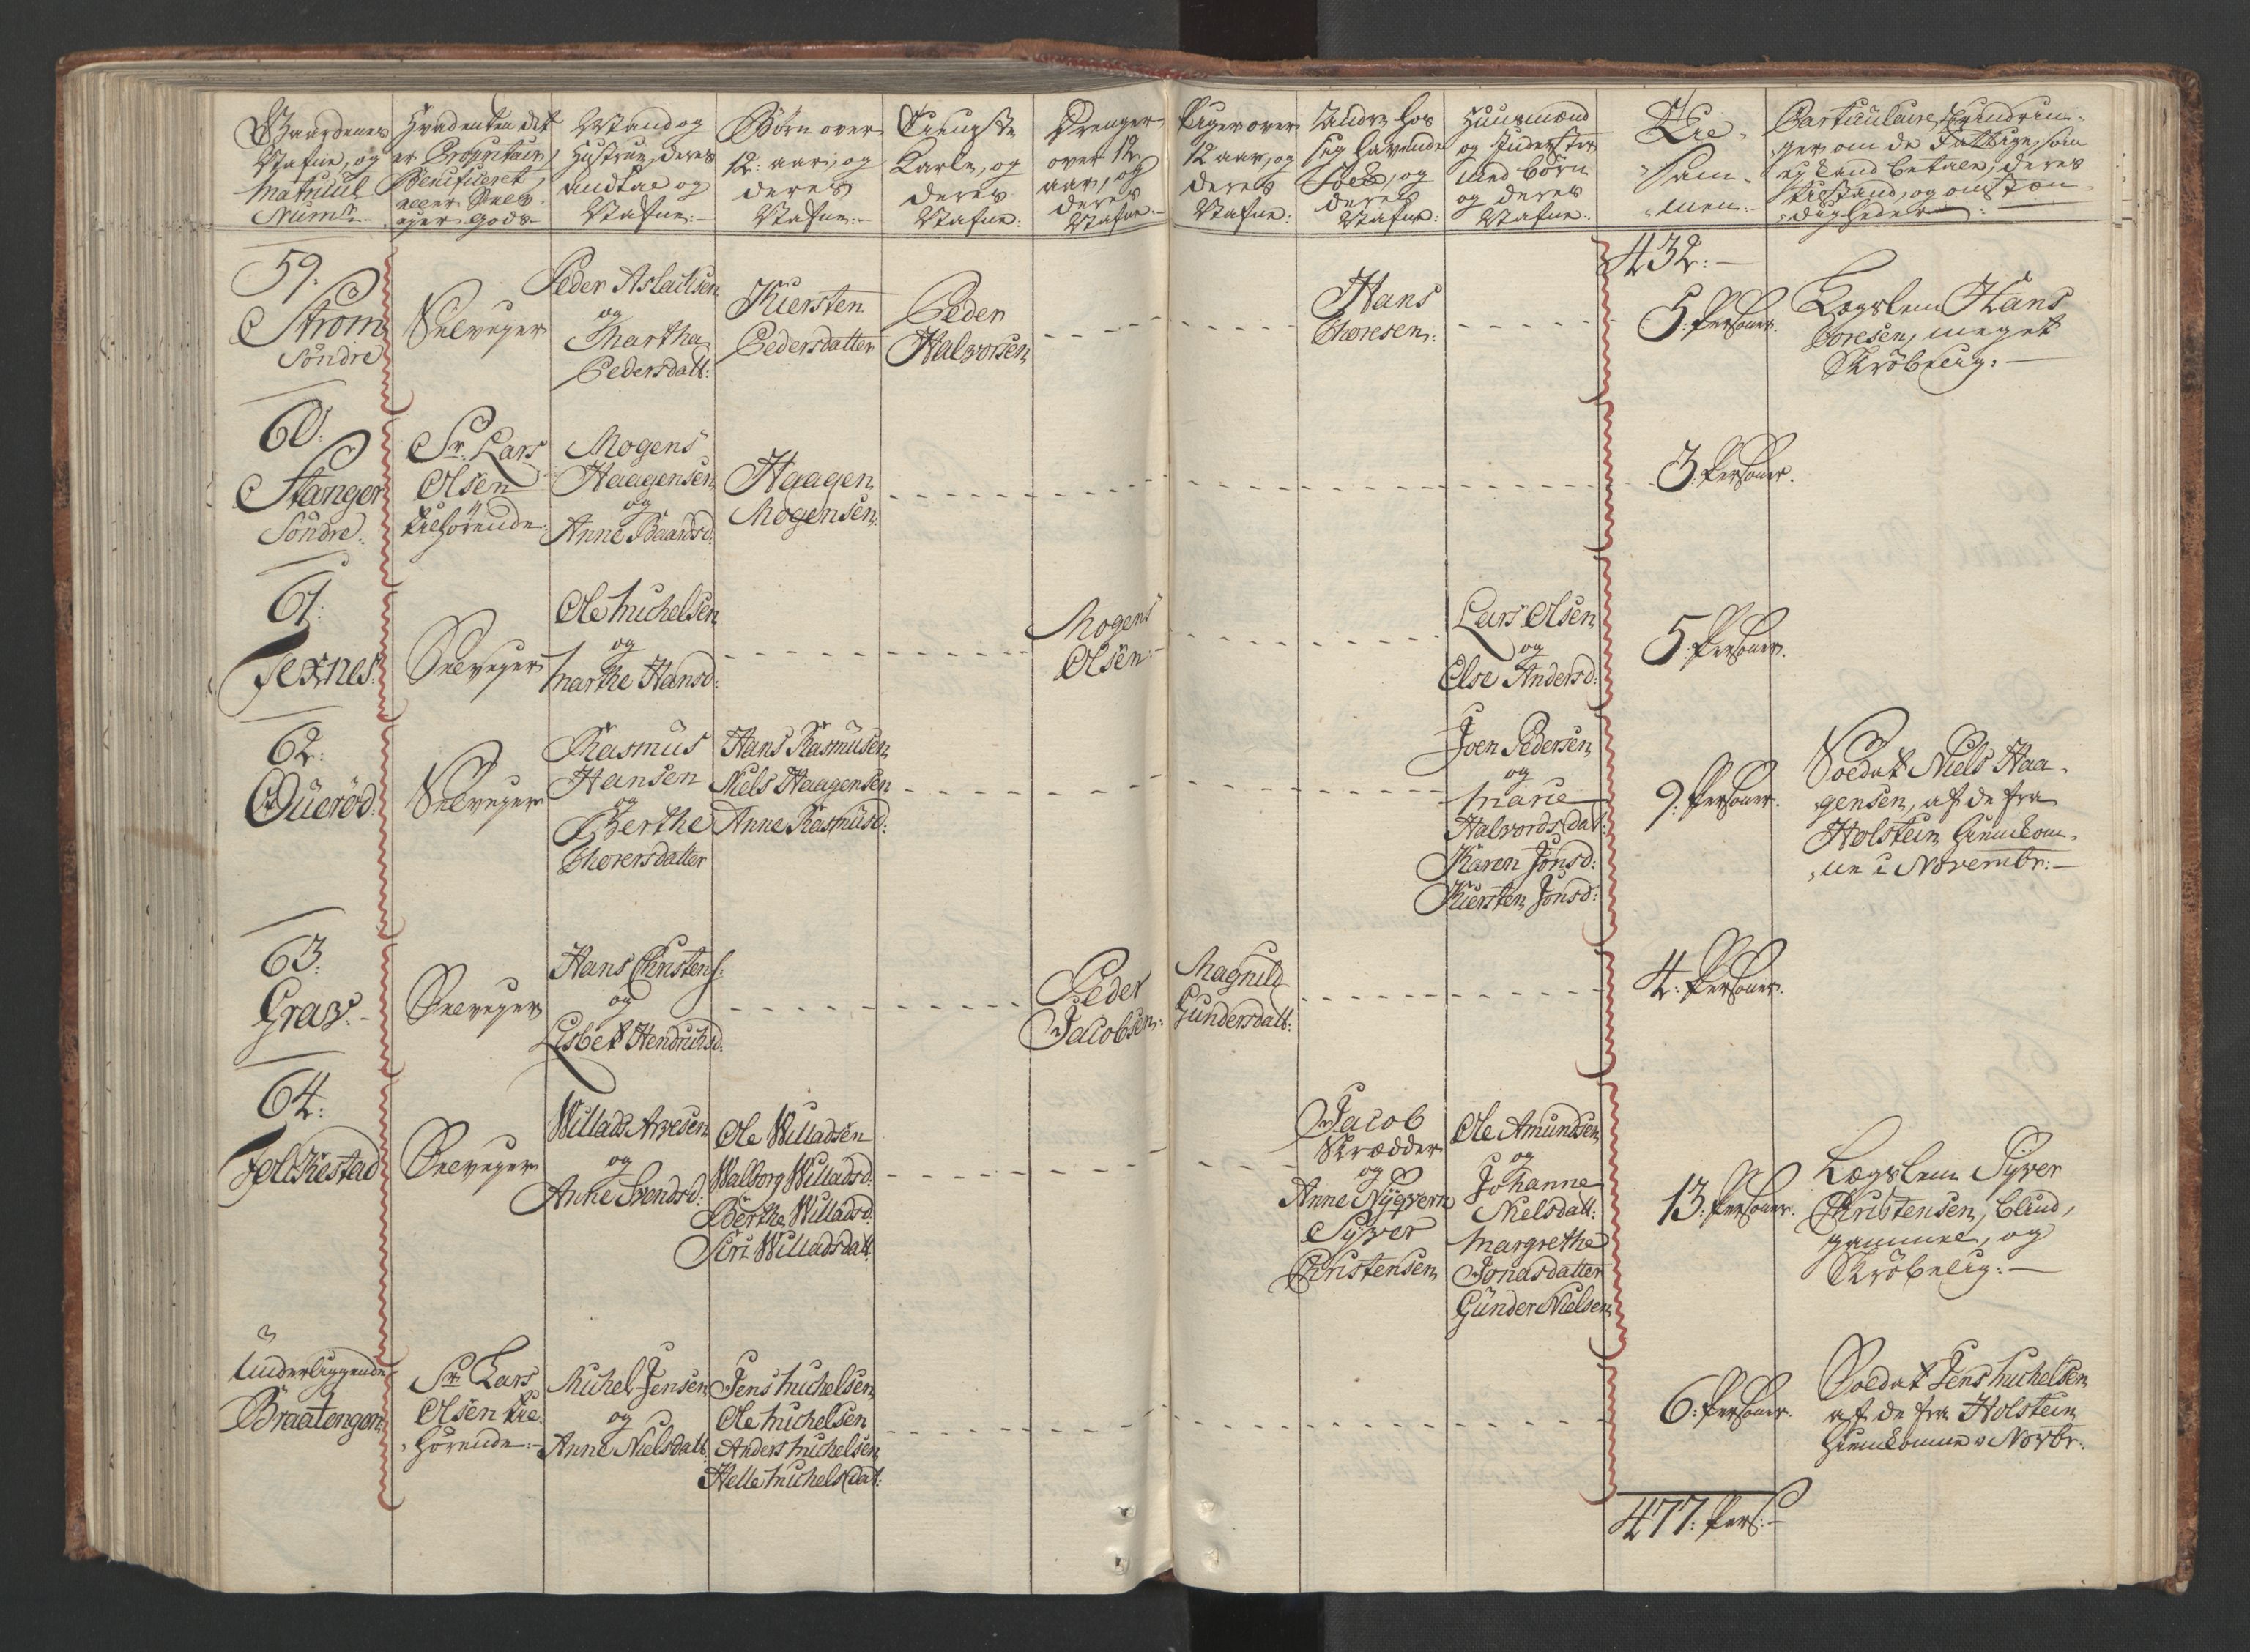 Gaardenes
Nafne, og
Matricul
Num:
Hvad enten det
er Proprietair,
Benificeret,
eller Selv-
ejer gods
Mand og
Hustrue, deres
andtal og
Nafne:
Børn over
12 aar, og
deres
Nafne:
Tieniste
Karle, og
deres
Nafne:
Drenger
over 12
aar, og
deres
Nafne:
Piger over
12 aar, og
deres
Nafne:
Andre hos
sig havende
Folck, og
deres
Nafne:
Huusmænd
og Inderster
med børn
og deres
Nafne:
Til-
sam-
men:
Particulaire Erindrin-
ger om de Fattige, som
ej kand betale, deres
tilstand, og omstæn-
digheder:
432:
59.
Strøm
Søndre
Selvejer
Peder Aslachsen
og
Martha
Pedersdatt:
Kiersten
Pedersdatter
Peder
Halvorsen
Hans
Thoresen:
5: Personer.
Lægslem Hans
Toresen, meget
Skrøbelig:
60:
Stanger
Søndre.
Sr. Lars
Olsen
tilhørende:
Mogens
Haagensen
og
Anne Baardsd:
Haagen
Mogensen:
3: Personer.
61:
Texnes:
Selvejer
Ole Michelsen
og
Marthe Hansd:
Mogens
Olsen:
Lars Olsen
og
Else Andersd:
5: Personer.
62:
Qverød:
Selvejer
Rasmus
Hansen
og
Berthe
Thorersdatter
Hans Rasmusen
Niels Haagensen
Anne Rasmusd:
Joen Pedersen
og
Marie
Halvordsdat:
Karen Jonsd:
Kiersten Jonsd:
9: Personer.
Soldat Niels Haa-
gensen, af de fra
Holstein hiemkom-
ne i Novembr:
63:
Grav:
Selvejer
Hans Christens:
og
Lisbet Hendrichsd:
Peder
Jacobsen:
Magnild
Gundersdatt:
4: Personer.
64:
Follkestad
Selvejer
Willads Arvesen
og
Anne Svendsd:
Ole Willadsen
Walborg Willadsd:
Berthe Willadsd:
Siri Willadsdatt
Jacob
Skrædder
og
Anne Nyqvern
Syver
Christensen
Ole Amundsen
og
Johanne
Nielsdatt:
Margrethe
Jonasdatter
Gunder Nielsen
13: Personer.
Lægslem Syver
Christensen, blind,
gammel, og
Skrøbelig:
Underliggende
Braatengen
Sr. Lars
Olsen til-
hørende:
Michel Jensen
og
Anne Nielsdatt:
Jens Michelsen
Ole Michelsen
Anders Michelsen
Helle Michelsdat:
6: Personer.
Soldat Jens Michelsen
af de fra Holstein
hiemkomne i Novbr:
477: Pers: